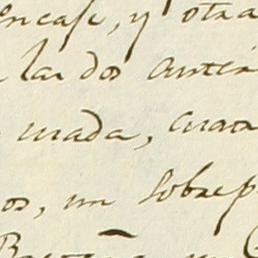 encase, y otra
las dos anter
urada, cuatr
os, un sobrep